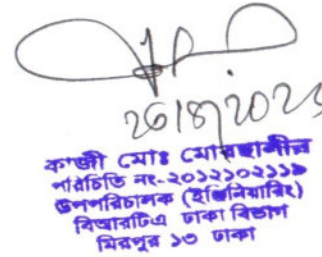 26/8/2025
কাজী মোঃ মোরছালীন
পরিচিতি নং-২০১২১০২১১৯
উপপরিচালক (ইঞ্জিনিয়ারিং)
বিআরটিএ ঢাকা বিভাগ
মিরপুর ১৩ ঢাকা